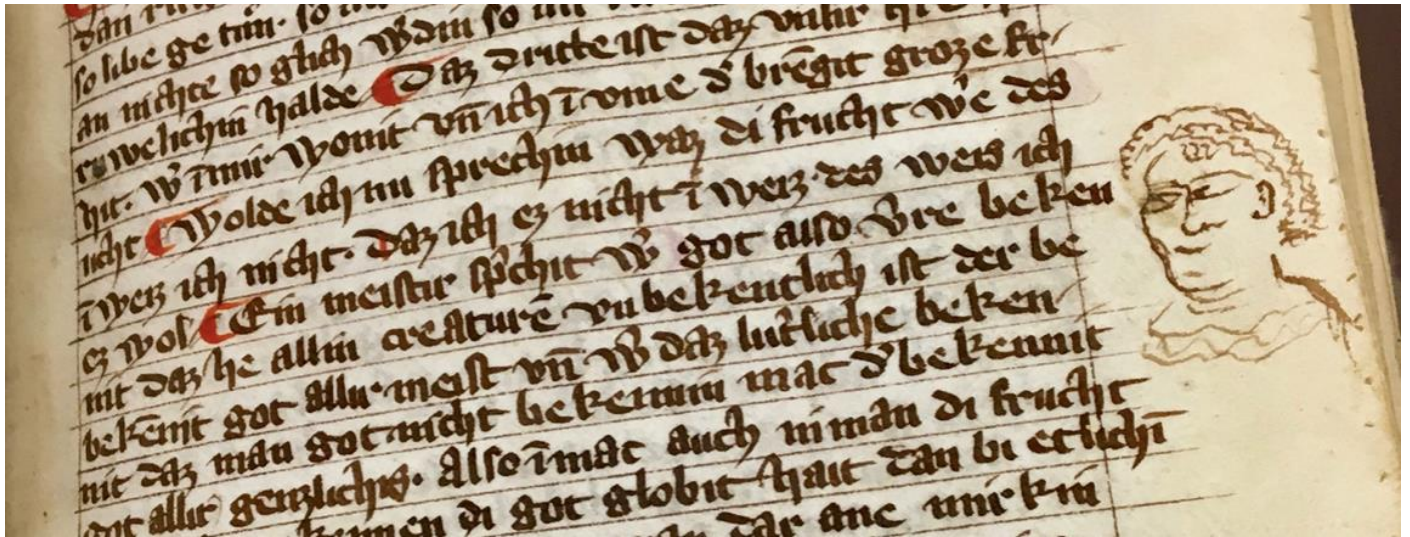 so libe ge tun. so
an nichte so glich w̄din so an
rowelichin halde Daz dritte ist daz
hit. w̄ ī mir wonit vn̄ ich ī yme d' brēgit groze fr
ucht Wolde ich nu sprechin waz di frucht w'e des
ī weiz ich nicht. Daz ich ez nicht ī weiz des weis ich
ez wol Ein meistir sp'chit w' got also v̄re beken
nit daz he allin creaturē vnbekentlich ist der be
bekenit got allir meist vn̄ w' daz lut'liche beken
nit daz man got nicht bekennin mac d' bekennit
got allir genzlichis. Also īmac auch niman di frucht
di got globit hait dan bi etlichī
dar ane mirkin